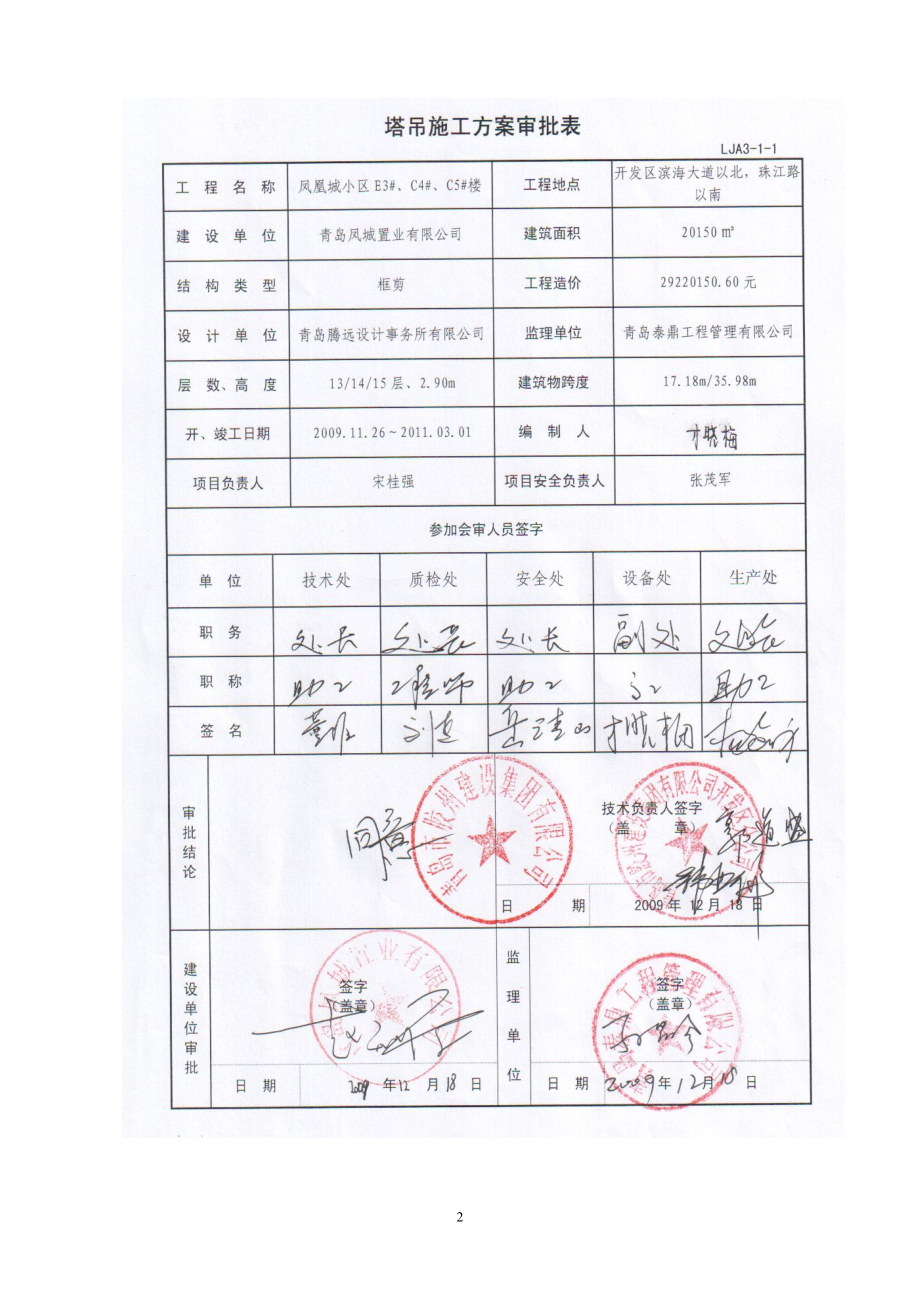 塔吊施工方案审批表
LJA3-1-1
工程名称 凤凰城小区 E3#、C4#、C5#楼 工程地点 开发区滨海大道以北，珠江路
以南
建设单位 青岛凤城置业有限公司 建筑面积 20150 ㎡
结构类型 框剪 工程造价 29220150.60 元
设计单位 青岛腾远设计事务所有限公司 监理单位 青岛泰鼎工程管理有限公司
层数、高度 13/14/15 层、2.90m 建筑物跨度 17.18m/35.98m
开、竣工日期 2009.11.26～2011.03.01 编制人
项目负责人 宋桂强 项目安全负责人 张茂军
参加会审人员签字
单位 技术处 质检处 安全处 设备处 生产处
职务 处长 处长 处长 副处
职称 助工 工程师 助工 高工 助工
签名
审批结论
同意
青岛市胶州建设集团有限公司
技术负责人签字
（盖 章）
日 期 2009 年 12 月 18 日
建设单位审批
签字
（盖章）
日 期 2009 年 12 月 18 日
监理单位
签字
（盖章）
日 期 2009 年 12 月 18 日
2